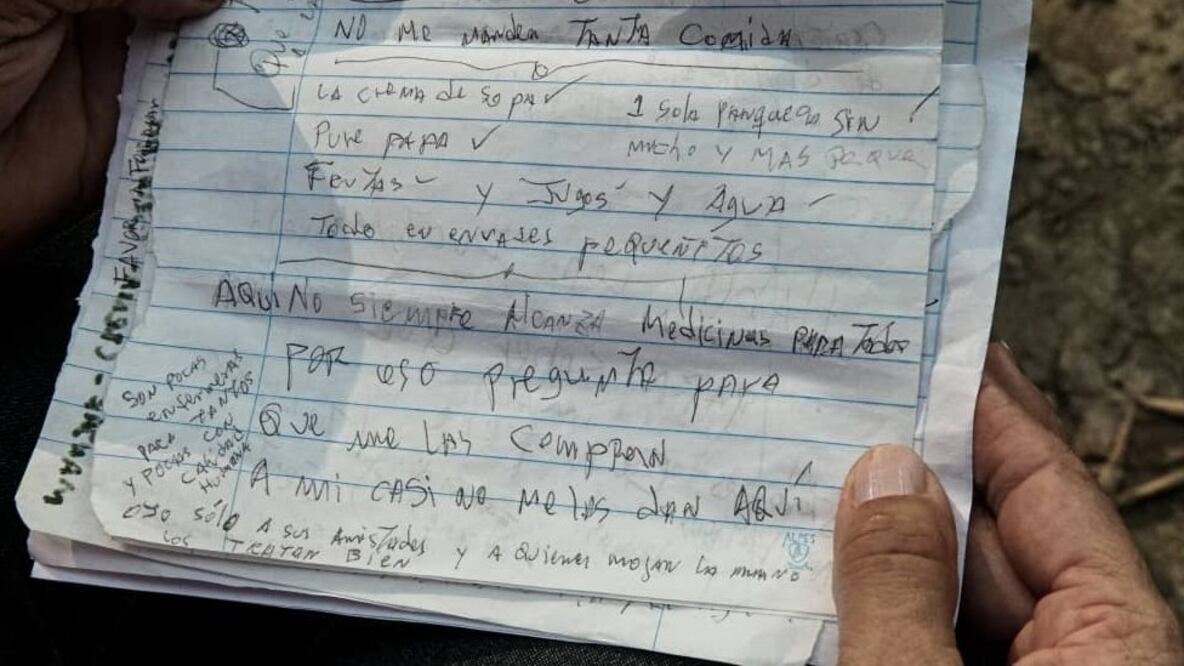 Que
NO Me manden TANTA Comida
LA Crema de sopa ✓
1 sola panqueca SIN
Pure papa ✓
mucho y MAS peque
Frutas y Jugos y Agua
Todo en envases pequeñitos
AQUI NO siempre Alcanza Medicinas PARA Todos
POR eso pregunta para
Que me las compran
A mi casi no me las dan AQUÍ
SON POCAS
enfermeras
PARA TANTOS
Y POCAS CON
CALIDAD
HUMANA
oyo sólo A sus Amistades y A Quienes mojan la mano
los TRATAN BIEN
FAVOR
ALPES